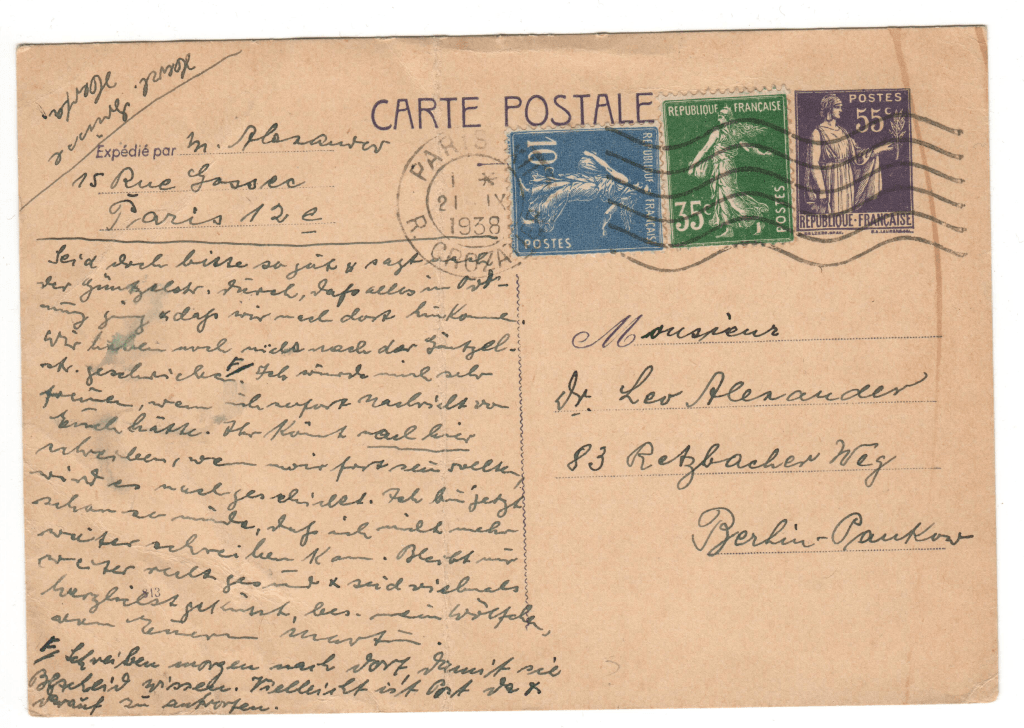 CARTE POSTALE
Expédié par M. Alexander
15 Rue Gossec
Paris 12 e
PARIS
1 *
21 IX
1938
R. CROZA
10c
RÉPUBLIQUE FRANÇAISE
POSTES
RÉPUBLIQUE FRANÇAISE
35c
POSTES
POSTES
55c
RÉPUBLIQUE-FRANÇAISE
Seid doch bitte so gut & sagt
der Güntzelstr. durch, daß alles in Ord-
nung ging & daß wir nach dort hinkommen
Wir haben noch nicht nach der Güntzel-
str. geschrieben. F/ Ich würde mich sehr
freuen, wenn ich sofort Nachricht von
Euch hätte. Ihr könnt nach hier
schreiben, wenn wir fort sein sollten,
wird es nachgeschickt. Ich bin jetzt
schon so müde, daß ich nicht mehr
weiter schreiben kann. Bleibt mir
weiter recht gesund & seid vielmals
herzlichst geküsst, bes. mein Wölfchen,
von Euerm Martin.
F/ Schreiben morgen nach dort, damit sie
Bescheid wissen. Vielleicht ist Post da &
darauf zu antworten.
813
Monsieur
Dr. Leo Alexander
83 Retzbacher Weg
Berlin-Pankow